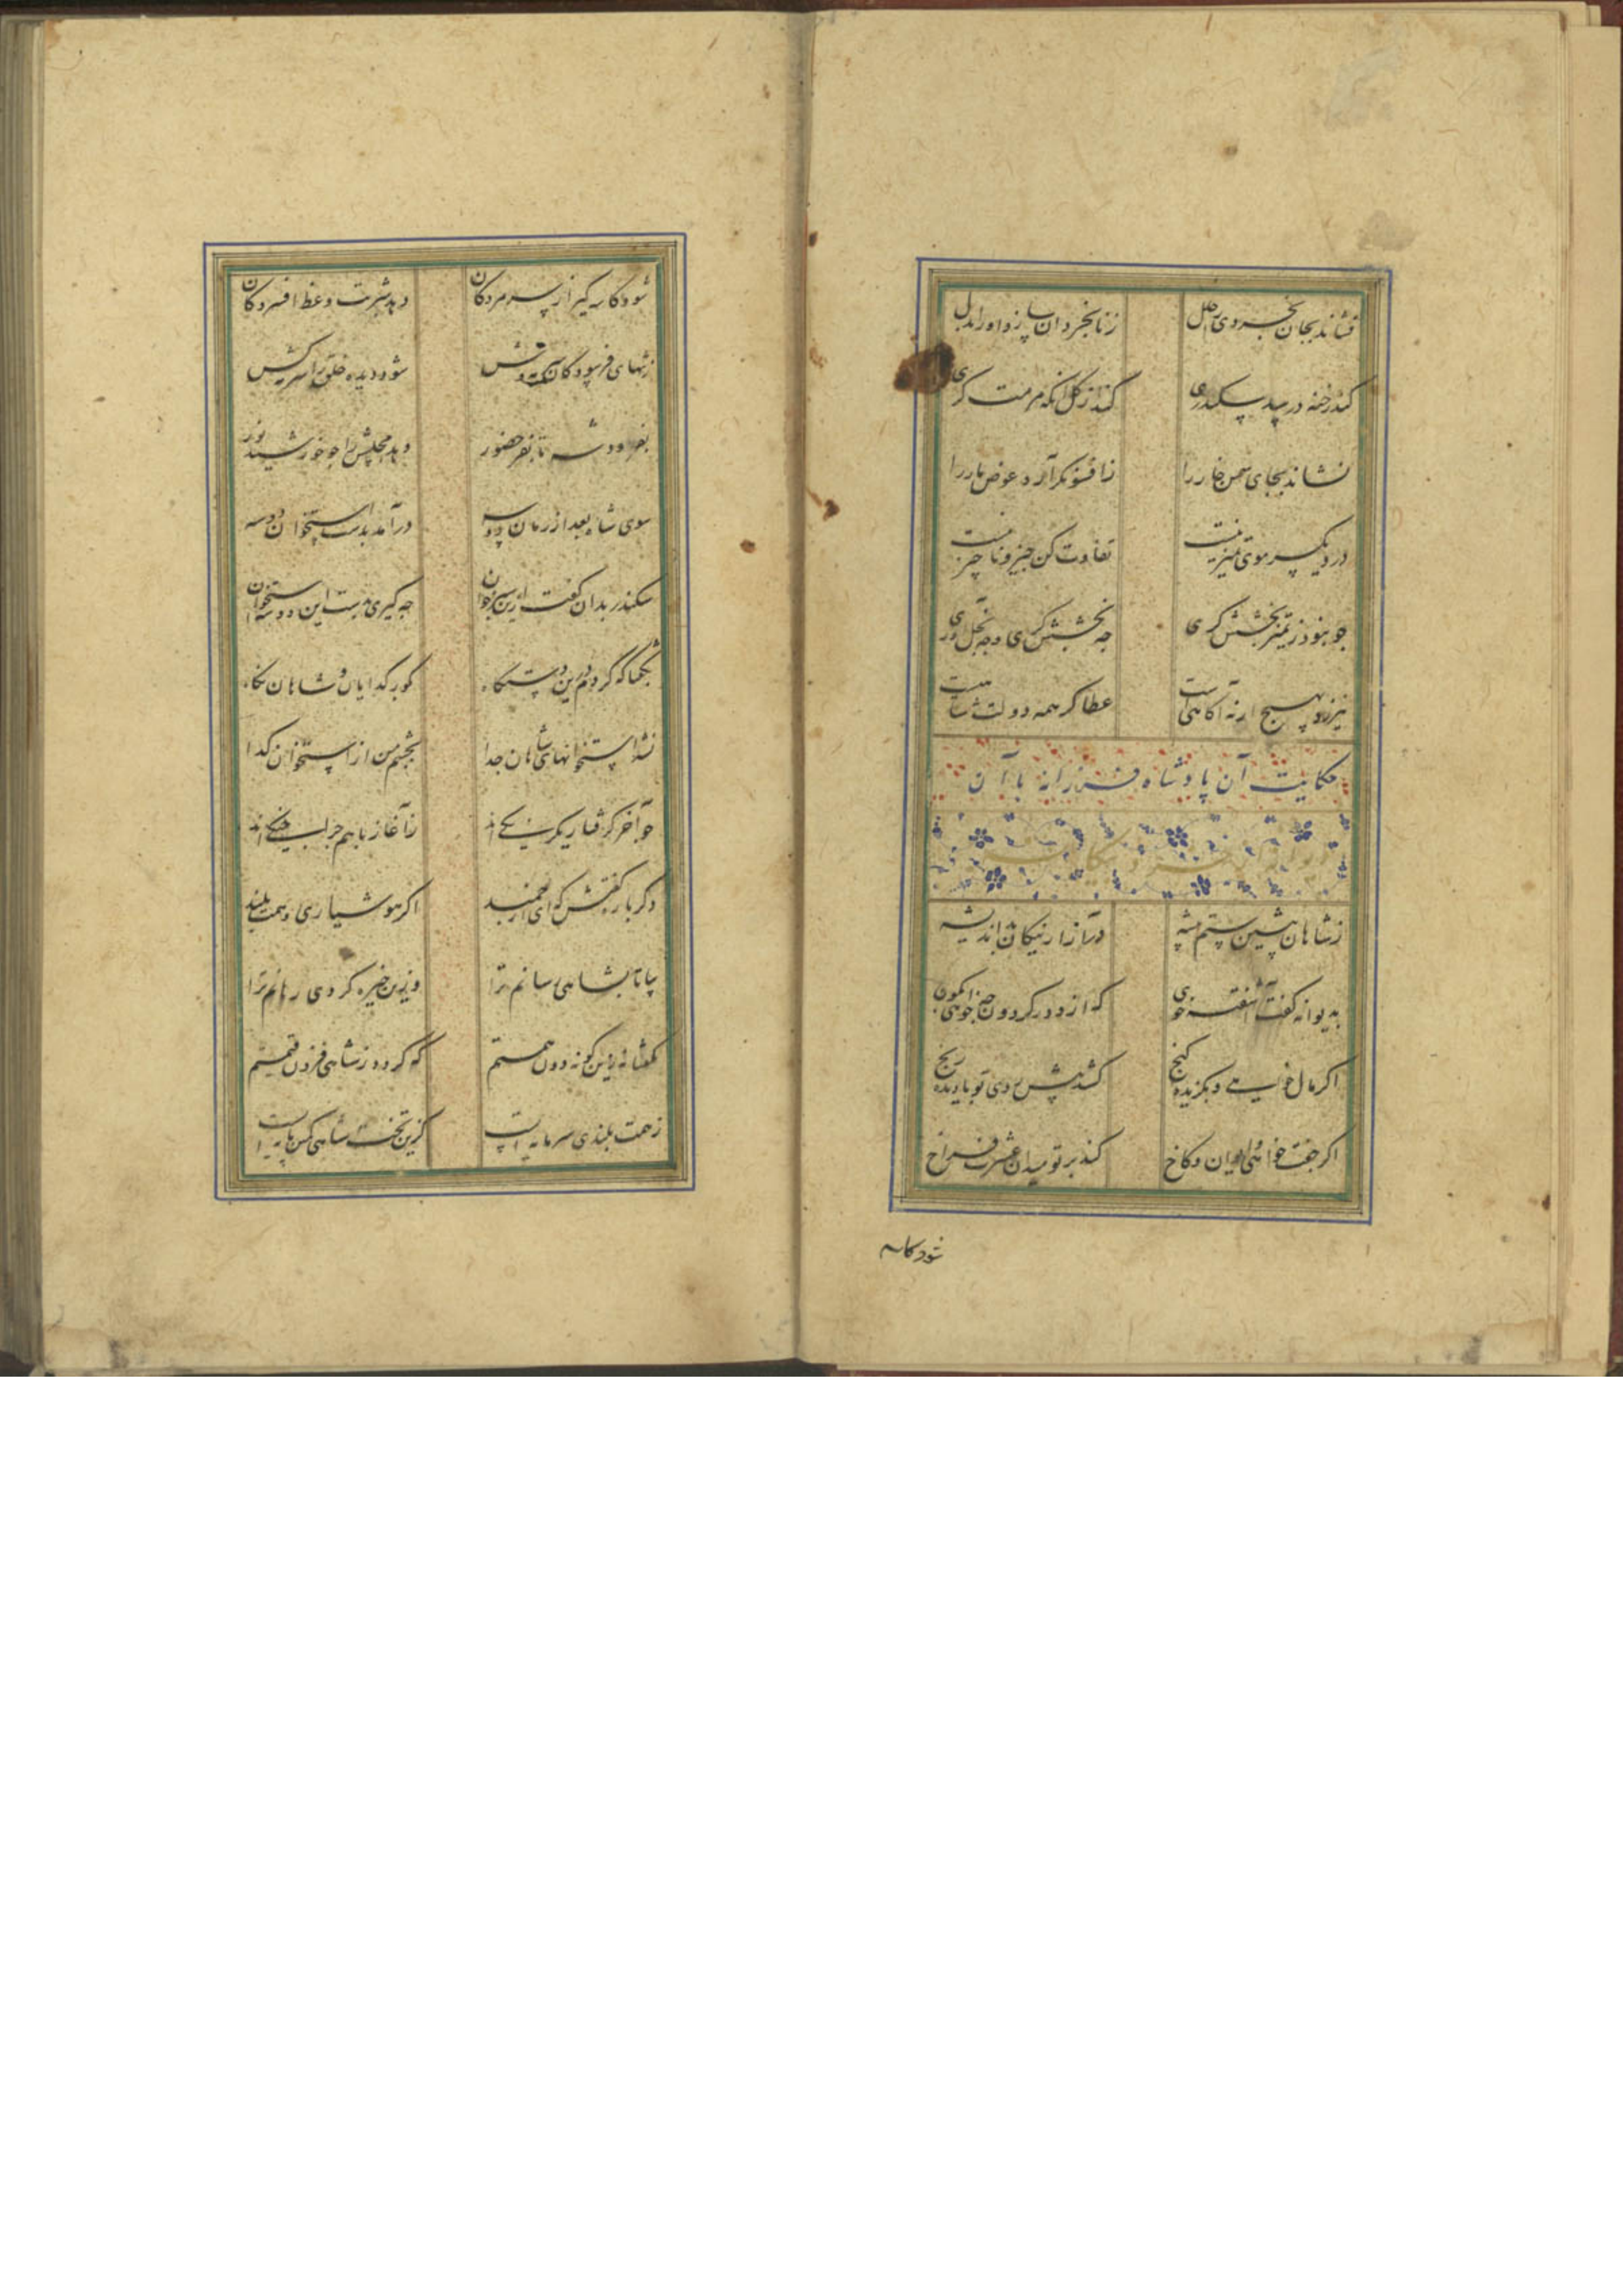 فشاند بجان بخردی را خلل زنابخردان سازد او را بدل
کند رخنه در سد سکندری کند از گل آنکه مرمت گری
نشاند بجای سمن خار را ز افسونگر آرد عوض مار را
در و یک سر موی تمییز نیست تفاوت کن چیز و ناچیز نیست
جو بنود ز تمییز بخشش گری جه بخشش گری وجه بخل آوری
نیرزد بهیچ ار نه آگاهی است عطا گر همه دولت شاهی است
حکایت آن پادشاه فرزانه با آن
ز شاهان پیشین ستم پیشه در آزار نیکان بد اندیشه
بدیوانه گفت آشفته خوی که از دور گردون چه خواهی بگوی
اگر مال خواهی و بگزیده گنج کشد پیش روی تو بادیده رنج
اگر جفت خواهی و ایوان و کاخ کند بر تو میدان عشرت فراخ
شود کاسه
شود کاسه گیر از سر مردگان دهد شربت وعظ افسردگان
ز تنهای فرسودگان
شود دیده خلق را سرمه کش
بفرمود شه تا بفر حضور دهد مجلسش را جو خورشید نور
سوی شاه بعد از زمان دو سه درآمد بدست استخوان دو سه
سکندر بدان گفت ازین سیر خوان جه گیری بدست این دو سه استخوان
بگفتا که کردم درین دستگاه بگور گدایان و شاهان نگاه
نشد استخوانهای شاهان جدا بچشم من از استخوان گدا
جو آخر گرفتار یکرنگی اند ز آغاز باهم جرا جنگی اند
دگر باره گفتش که ای ارجمند اگر هوشیاری و همت بلند
بیا تا بشاهی رسانم ترا وزین خیره گردی رهانم ترا
بگفتا نه زین گونه دون همتم که گردد ز شاهی فزون قیمتم
ز همت بلندی سرمایه است کزین تخت شاهی کمین پایه است